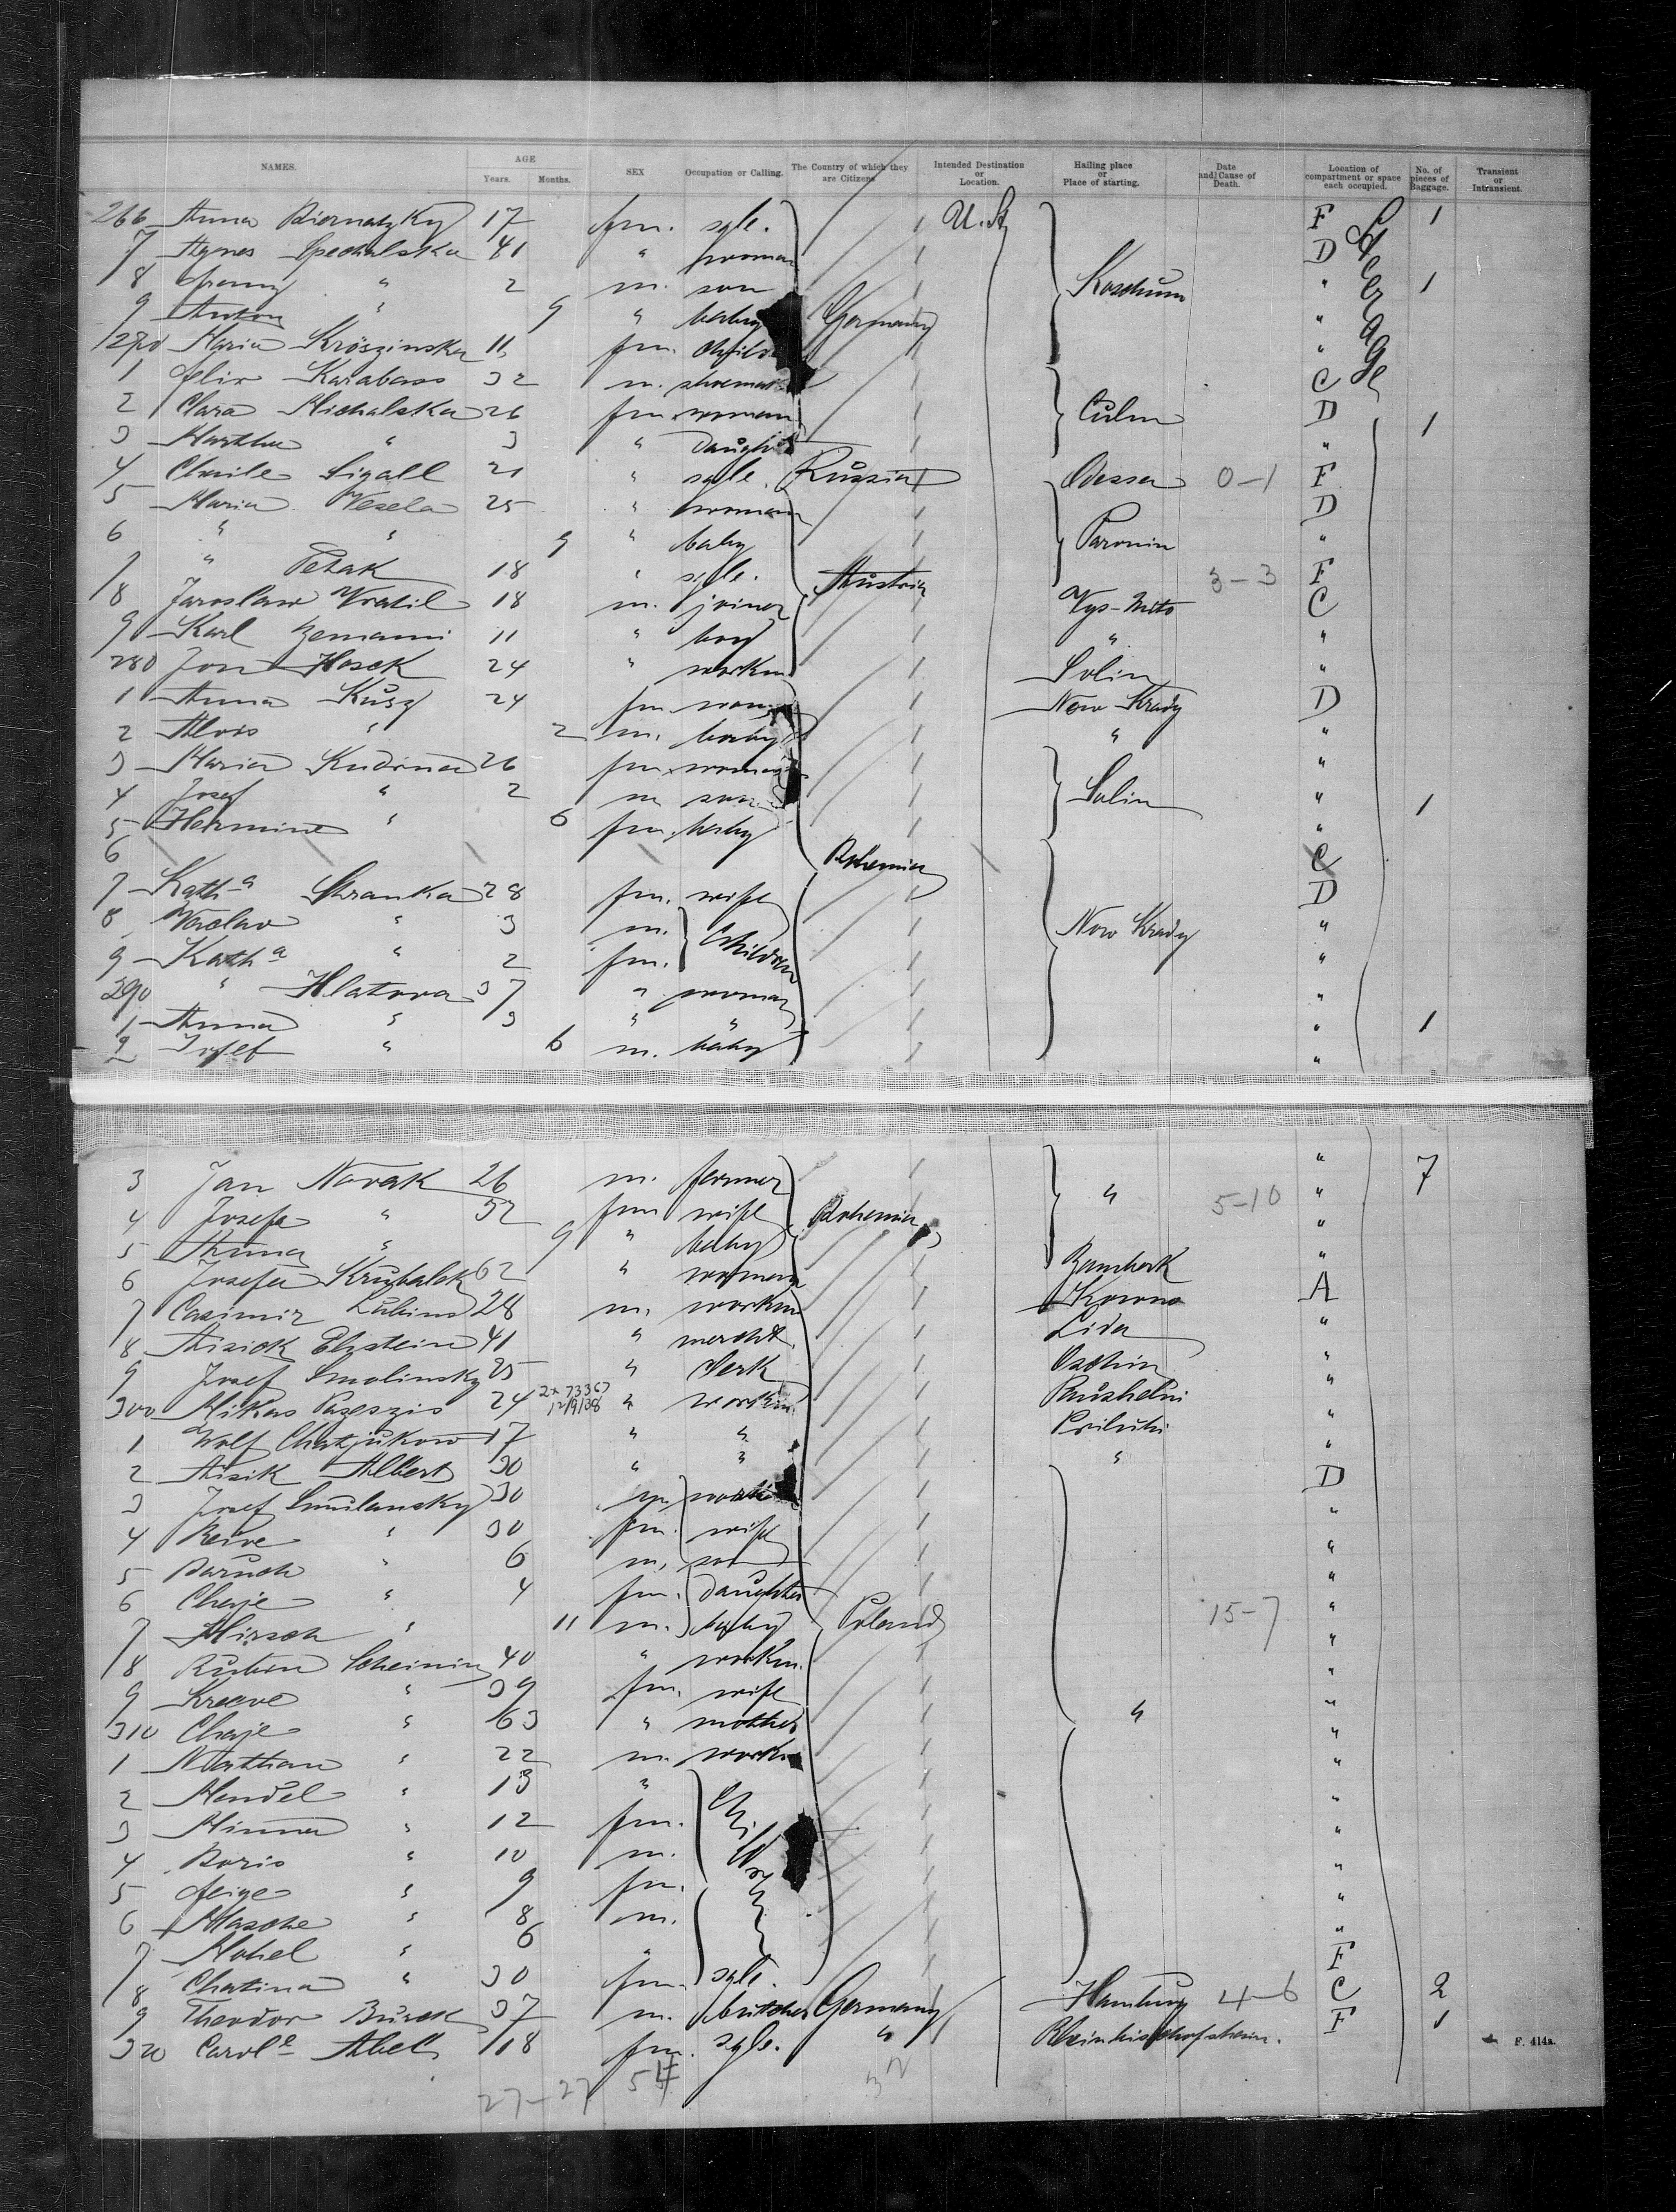 NAMES. AGE Years. Months. SEX Occupation or Calling. The Country of which they are Citizens Intended Destination or Location. Hailing place or Place of starting. Date and Cause of Death. Location of compartment or space each occupied. No. of pieces of Baggage. Transient or Intransient.
266 Anna Biernatzky 17 fm. sgle. U.St. F 1
7 Agnes Spechalska 41 " woman D
8 " 2 m. son Koschum " 1
9 Anton " 9 " baby Germany "
270 Maria 11 fm. child "
1 Felix Karabass 32 m. C
2 Clara Michalska 26 fm woman Culm D 1
3 Martha " 3 " daught "
4 Sigall 21 " sgle. Russia Odessa 0-1 F
5 Maria Vesela 25 " woman D
6 " " 9 " baby Paronin "
7 " Petak 18 " sgle. Austria 3-3 F
8 Jaroslaw Vratil 18 m. joiner Vys-Mito C
9 Karl Zemann 11 " boy " "
280 Jon Hosek 24 " workm Solin "
1 Anna Kusy 24 fm Now Krady D
2 Alois " 2 m. baby " "
3 Maria Kudrna 26 fm. woman "
4 Josef " 2 m son Solin " 1
5 Hermine " 6 fm. baby "
6 Bohemia C
7 Kath a Stranka 28 fm. wife D
8 Vaclav " 3 m. Children Now Krady "
9 Kath a " 2 fm. "
290 " Hlatova 37 " woman "
1 Anna " 3 " " " 1
2 Josef " 6 m. baby "
3 Jan Novak 26 m. farmer " 7
4 Josefa " 32 fm wife Bohemia " 5-10 "
5 Anna " 9 " baby "
6 Josefa 62 " woman Zamberk "
7 Casimir Lubins 28 m. workm Kowno A
8 Aisick Epstein 41 " mercht. Lida "
9 Josef Smolinsky 25 " clerk "
300 Mikas 24 2x 73367 12/9/38 " workm. "
1 Wolf Chatjukow 17 " " Priluki "
2 Aisik Albert 30 " " " "
3 Josef Smilansky 30 m D
4 Reive " 30 fm. wife "
5 Baruch " 6 m. son "
6 Chaje " 4 fm. daughter "
7 Hirsch " 11 m. baby Poland 15-7 "
8 Rubin Scheinin 40 " workm. "
9 " 39 fm. wife "
310 Chaje " 63 " mother " "
1 Nathan " 22 m. workm "
2 Mendel " 13 " Children "
3 Minna " 12 fm. "
4 Boris " 10 m. "
5 Feige " 9 fm. "
6 " 8 m. "
7 " 6 " "
8 Chatina " 30 fm. sgle. F
9 Theodor 37 m. butcher Germany Hamburg 4-6 C 2
320 Carol e Abel 18 fm. sgle. " Rheinbischofsheim. F 1
Steerage
27-27 54
F. 414a.